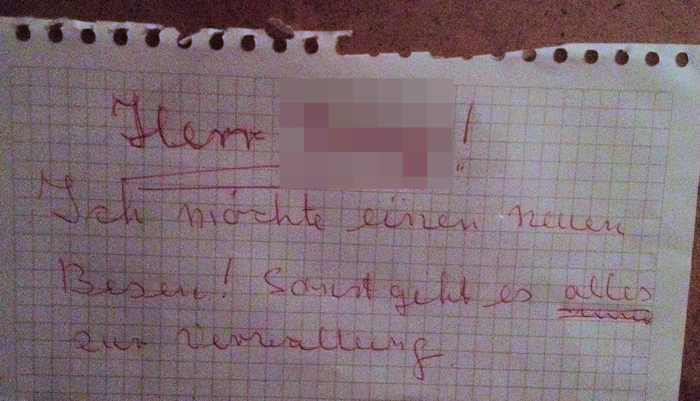 Herr !
Ich möchte einen neuen
Besen! Sonst geht es alles
zur Verwaltung.